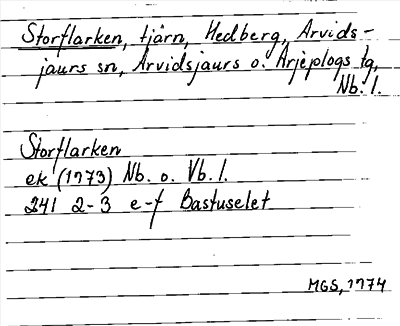 Storflarken, tjärn, Hedberg, Arvids-
jaurs sn, Arvidsjaurs o. Arjeplogs tg,
Nb. l.
Storflarken
ek (1973) Nb. o. Vb. l.
241 2-3 e-f Bastuselet
MGS, 1974